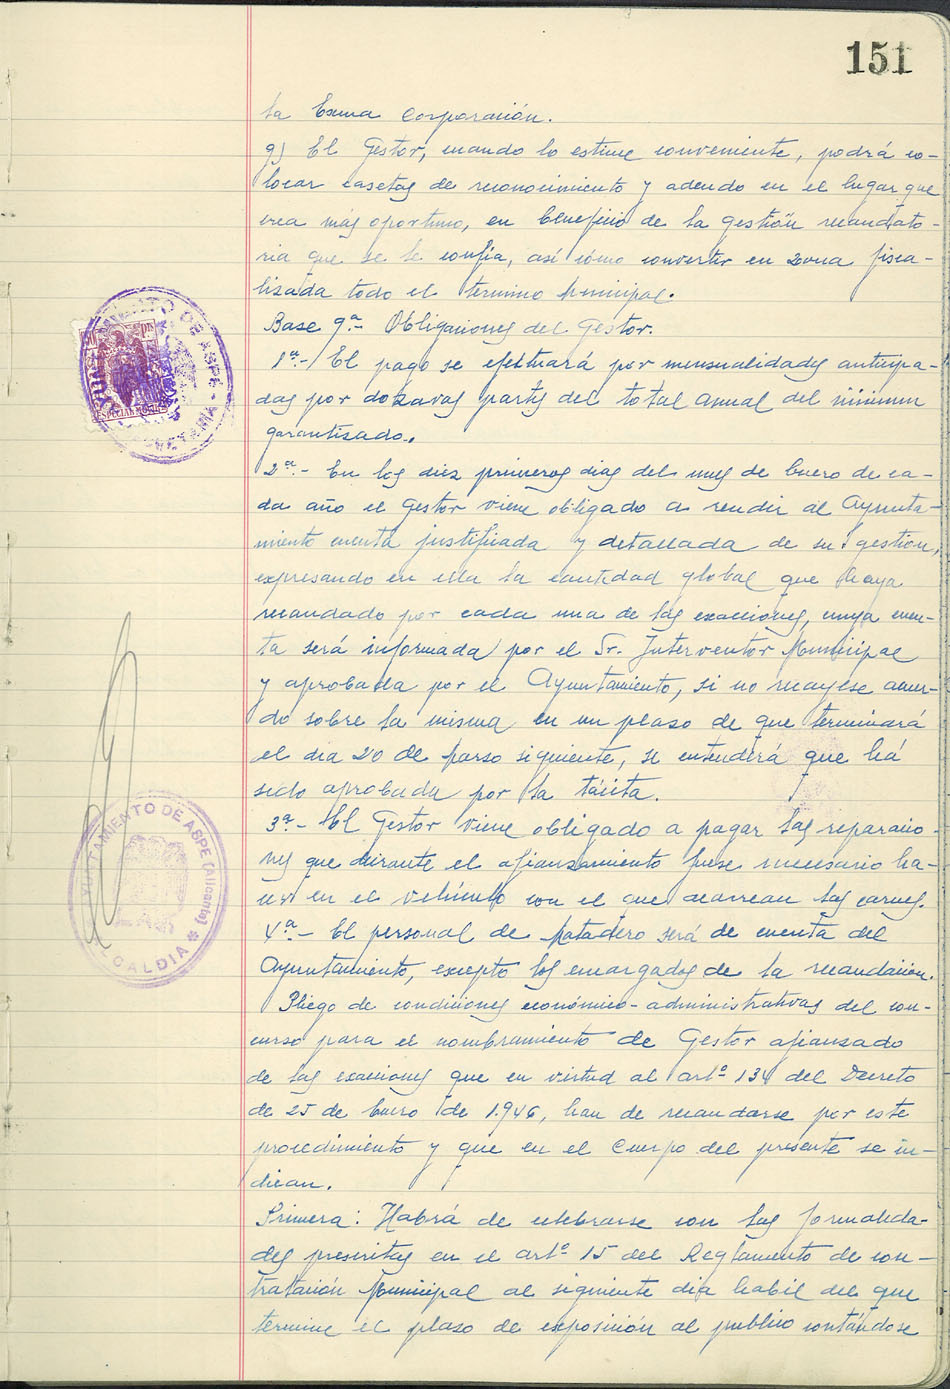 151
la Excma Corporación.
g) El Gestor, cuando lo estime conveniente, podrá co-
locar casetas de reconocimiento y adeudo en el lugar que
crea más oportuno, en beneficio de la gestión recaudato-
ria que se le confía, así cómo convertir en zona fisca-
lizada todo el termino Municipal.
Base 9ª.- Obligaciones del Gestor.
1ª.- El pago se efectuará por mensualidades anticipa-
das por dozavas partes del total anual del mínimum
garantizado.
2ª.- En los diez primeros dias del mes de Enero de ca-
da año el Gestor viene obligado a rendir al Ayunta-
miento cuenta justificada y detallada de su gestión,
expresando en ella la cantidad global que haya
recaudado por cada una de las exacciones, cuya cuen-
ta será informada por el Sr. Interventor Municipal
y aprobada por el Ayuntamiento, si no recayese acuer-
do sobre la misma en un plazo de que terminará
el dia 20 de Marzo siguiente, se entenderá que há
sido aprobada por la tácita.
3ª.- El Gestor viene obligado a pagar las reparacio-
nes que durante el afianzamiento fuese necesario ha-
cer en el vehículo con el que acarrean las carnes.
4ª.- El personal de Matadero será de cuenta del
Ayuntamiento, excepto los encargados de la recaudación.
Pliego de condiciones económico-administrativas del con-
curso para el nombramiento de Gestor afianzado
de las exacciones que en virtud al artº 134 del Decreto
de 25 de Enero de 1.946, han de recaudarse por este
procedimiento y que en el cuerpo del presente se in-
dican.
Primera: Habrá de celebrarse con las formalida-
des prescritas en el artº 15 del Reglamento de con-
tratación Municipal al siguiente dia habil del que
termine el plazo de exposición al publico contándose
AYUNTAMIENTO DE ASPE
SECRETARIA
ESPECIAL MOVIL
AYUNTAMIENTO DE ASPE (Alicante)
ALCALDIA